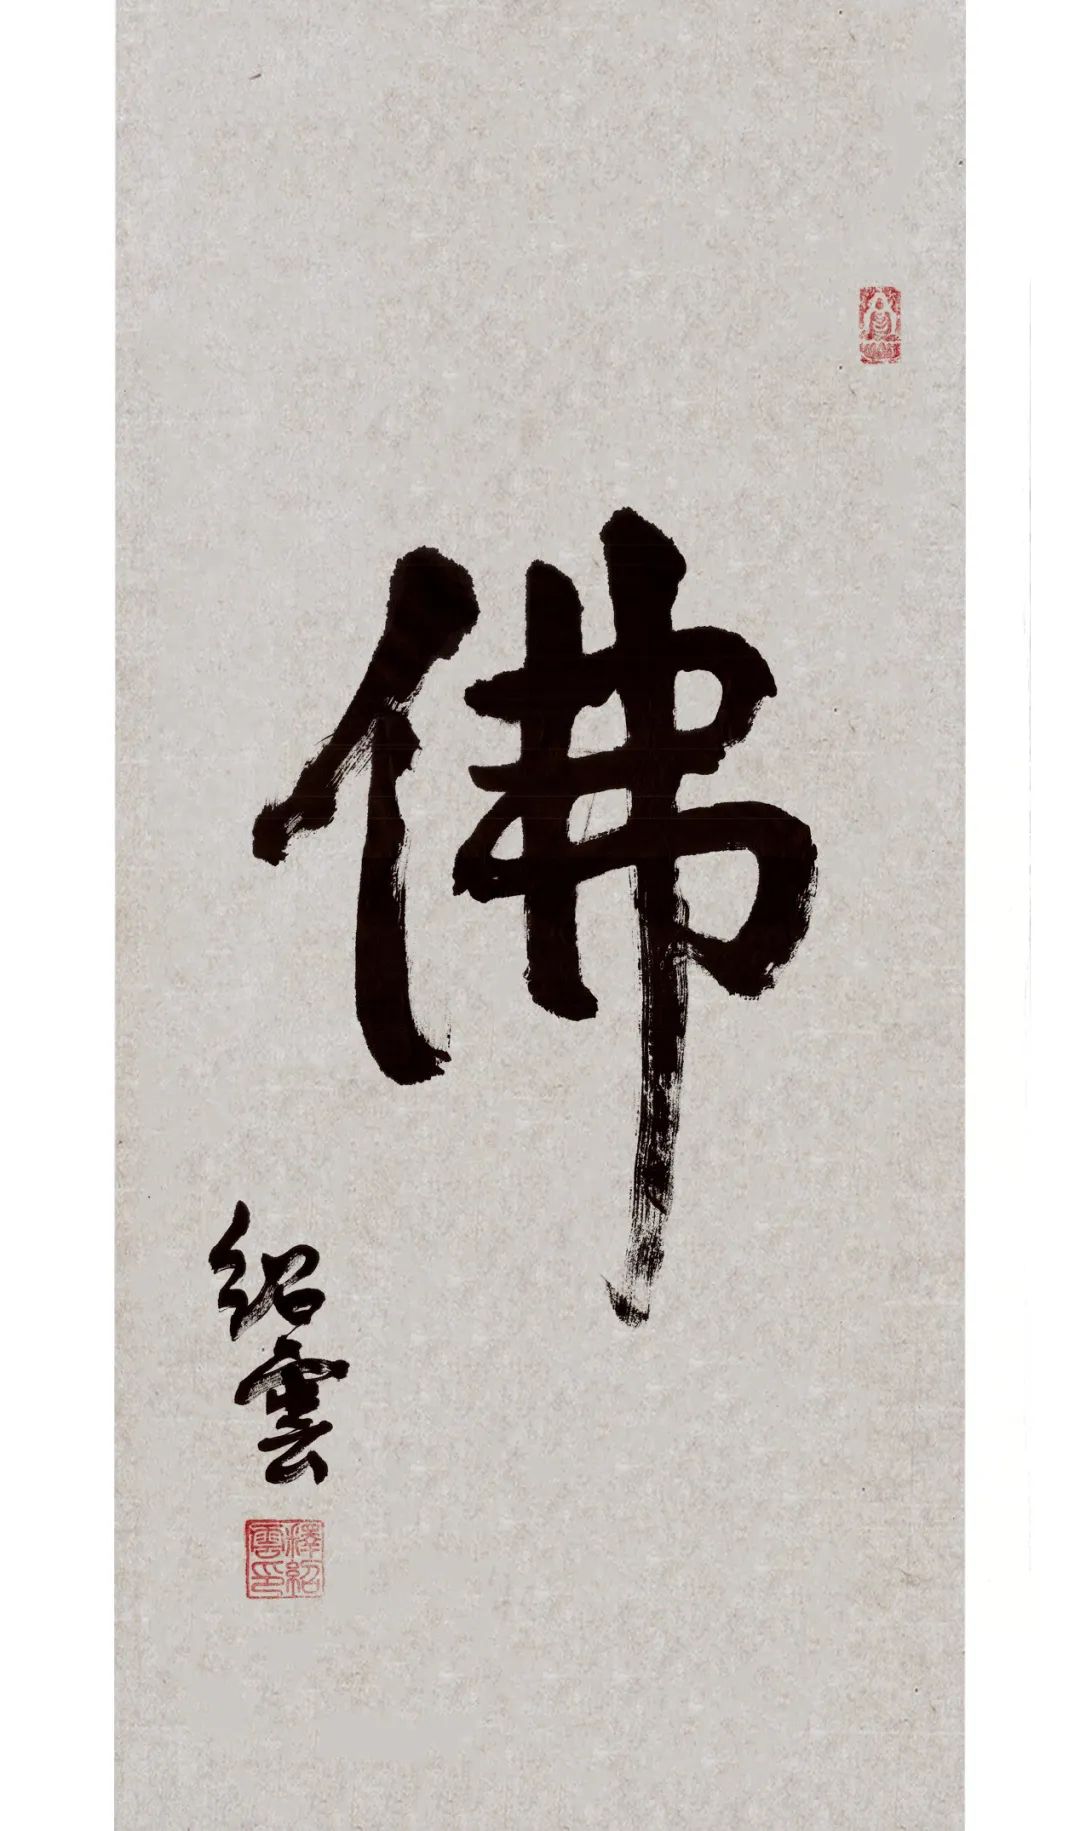 佛
紹雲
釋紹雲印